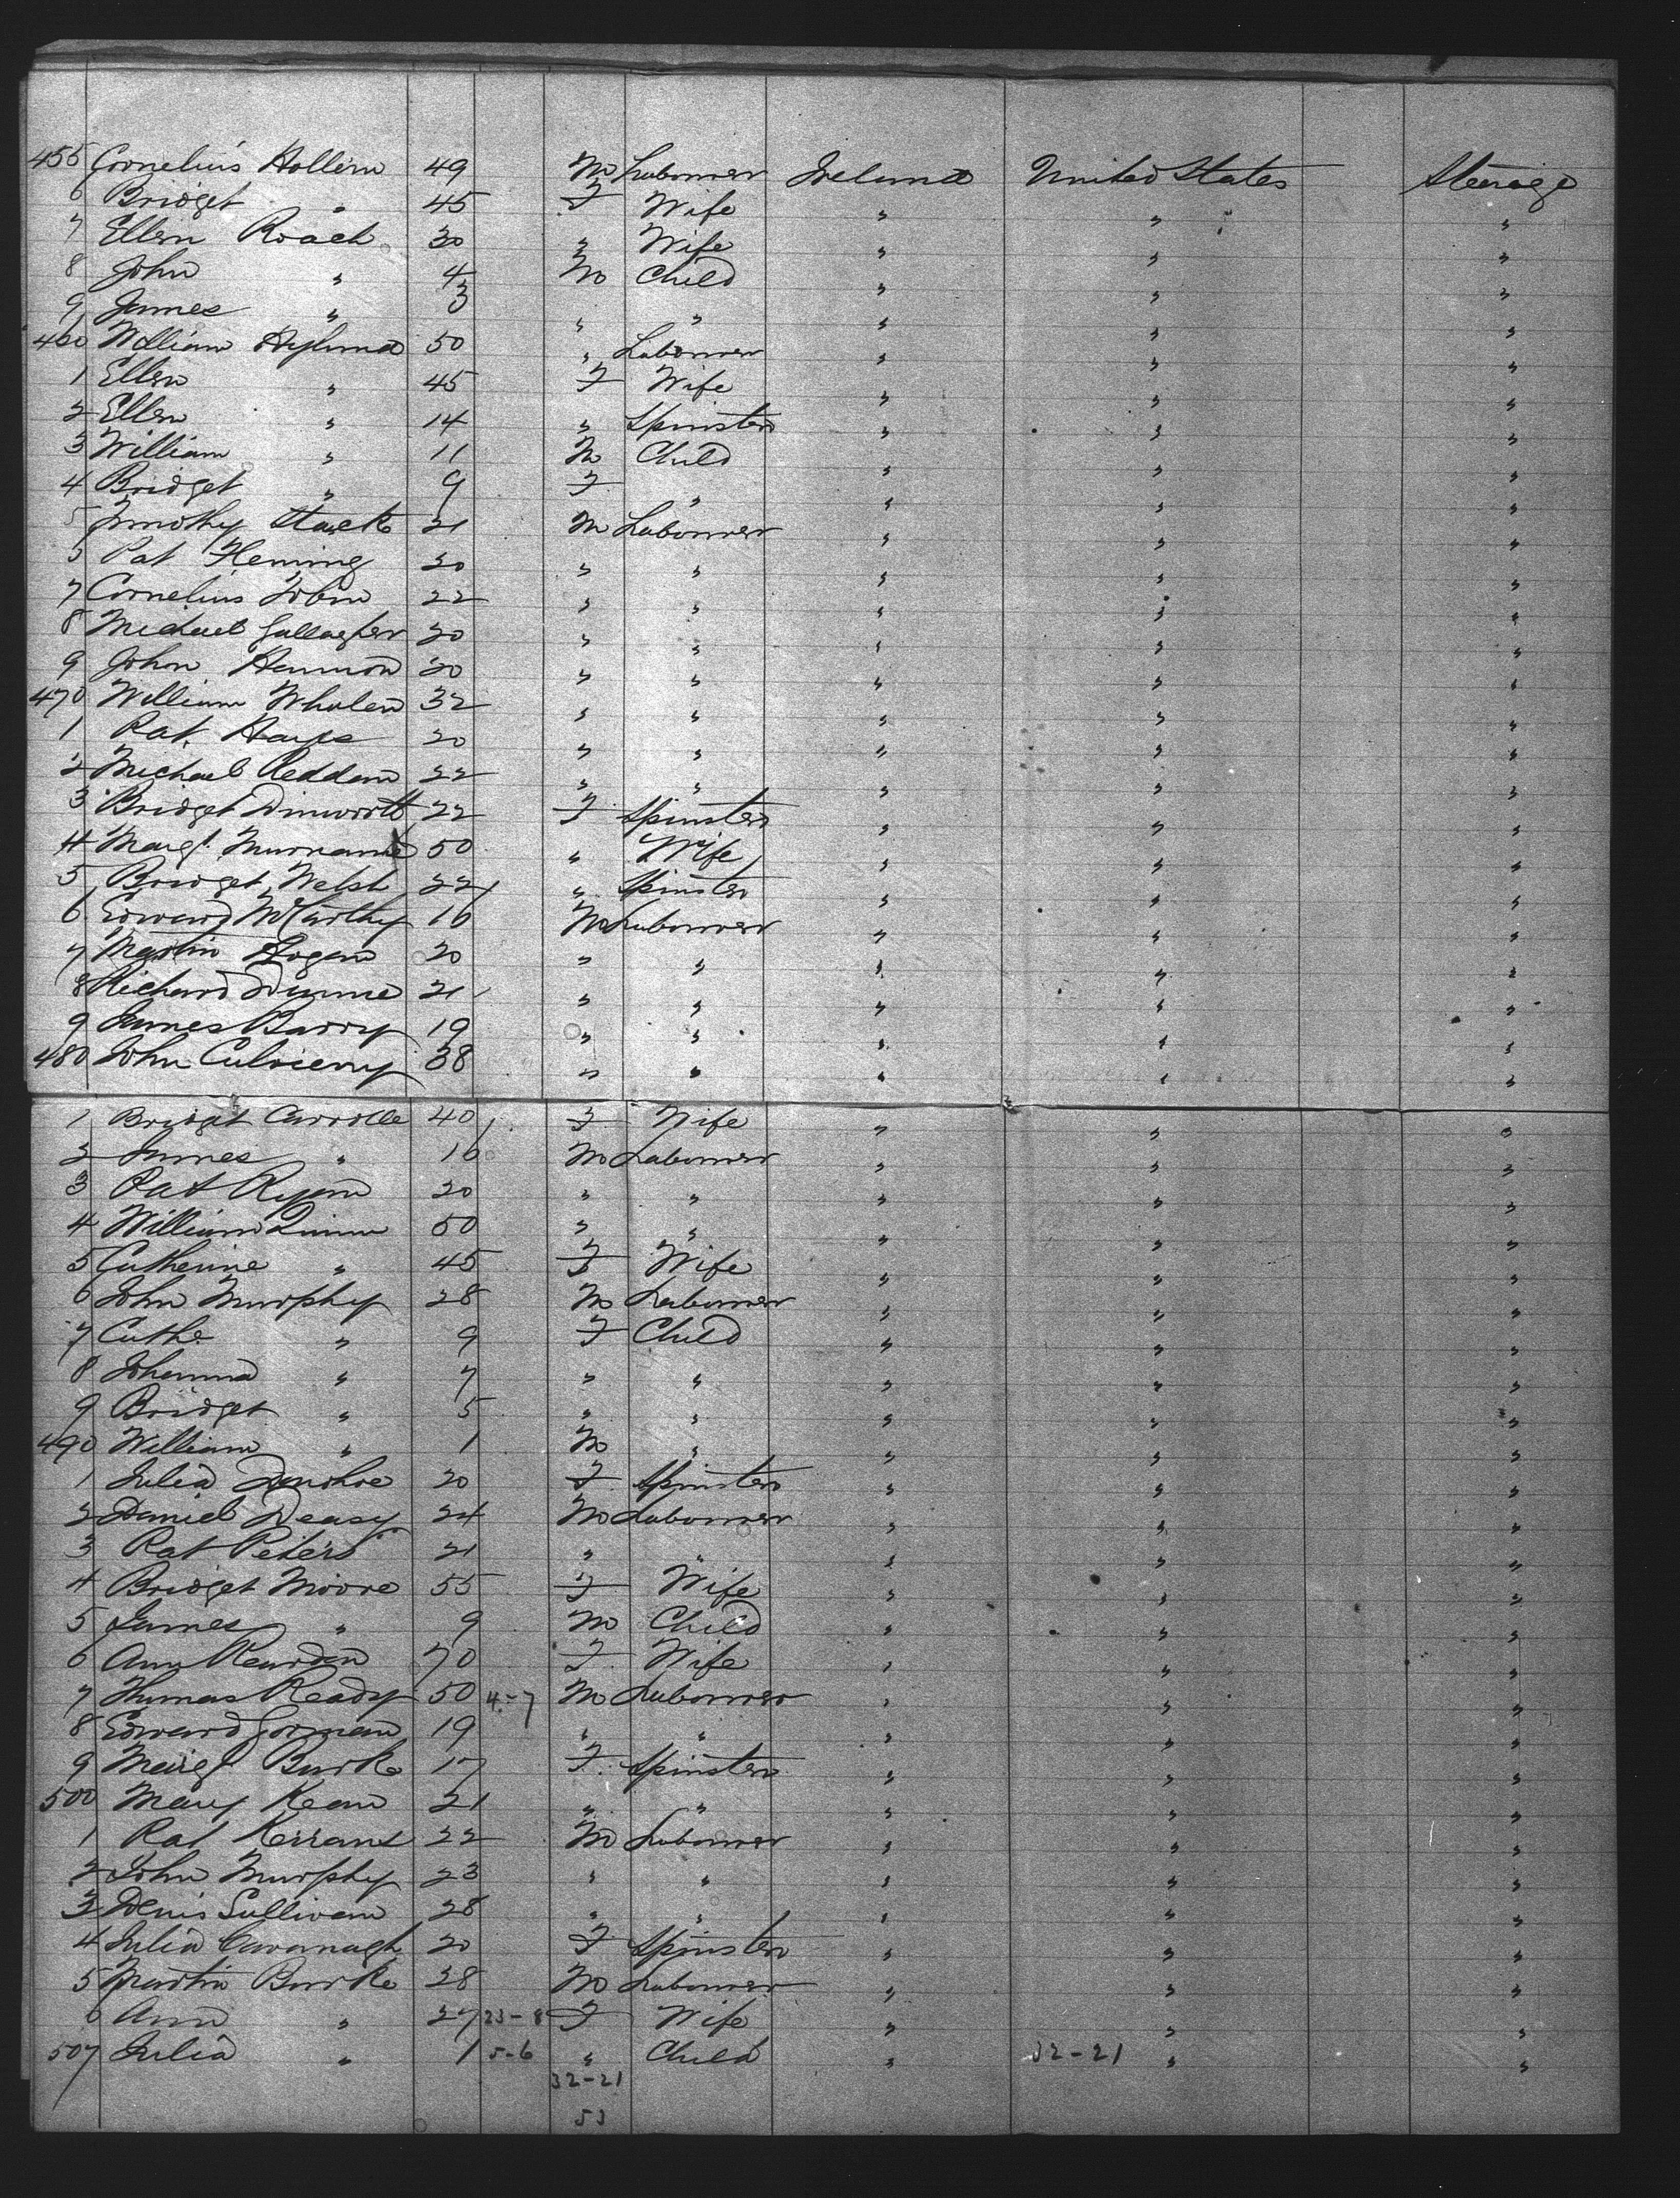 455 Cornelius Hollern 49 M Labourer Ireland United States Steerage
6 Bridget " 45 F Wife " " "
7 Ellen Roach 30 " Wife " " "
8 John " 4 M Child " " "
9 James " 3 " " " " "
460 William Hyland 50 " Labourer " " "
1 Ellen " 45 F Wife " " "
2 Ellen " 14 " Spinster " " "
3 William " 11 M Child " " "
4 Bridget " 9 F " " " "
5 Timothy Stack 21 M Labourer " " "
5 Pat Fleming 20 " " " " "
7 Cornelius Tobin 22 " " " " "
8 Michael Gallagher 20 " " " " "
9 John Hannon 20 " " " " "
470 William Whalen 32 " " " " "
1 Pat. Hayes 20 " " " " "
2 Michael Reddan 22 " " " " "
3 Bridget Dinworth 22 F Spinster " " "
4 Margt. Murnane 50 " Wife " " "
5 Bridget Welsh 22 " Spinster " " "
6 Edward McCarthy 16 M Labourer " " "
7 Martin Hogan 20 " " " " "
8 Richard Dunne 21 " " " " "
9 James Barry 19 " " " " "
480 John 38 " " " " "
1 Bridget Carrolle 40 F Wife " " "
2 James " 16 M Labourer " " "
3 Pat Ryan 20 " " " " "
4 William Quinn 50 " " " " "
5 Catherine " 45 F Wife " " "
6 John Murphy 28 M Labourer " " "
7 Cathe. " 9 F Child " " "
8 Johanna " 7 " " " " "
9 Bridget " 5 " " " " "
490 William " 1 M " " " "
1 Julia Donohoe 20 F Spinster " " "
2 Daniel Deasy 24 M Labourer " " "
3 Pat Peters 21 " " " " "
4 Bridget Moore 55 F Wife " " "
5 James " 9 M Child " " "
6 Ann Reardon 70 F Wife " " "
7 Thomas Ready 50 4-7 M Labourer " " "
8 Edward Gorman 19 " " " " "
9 Margt Burke 17 F. Spinster " " "
500 Mary Kean 21 " " " " "
1 Pat Kerrans 22 M Labourer " " "
2 John Murphy 23 " " " " "
3 Denis Sullivan 28 " " " " "
4 Julia Cavanagh 20 F Spinster " " "
5 Martin Burke 28 M Labourer " " "
6 Ann " 27 23-8 F Wife " " "
507 Julia " 1 5-6 " Child " 32-21 " "
32-21
53